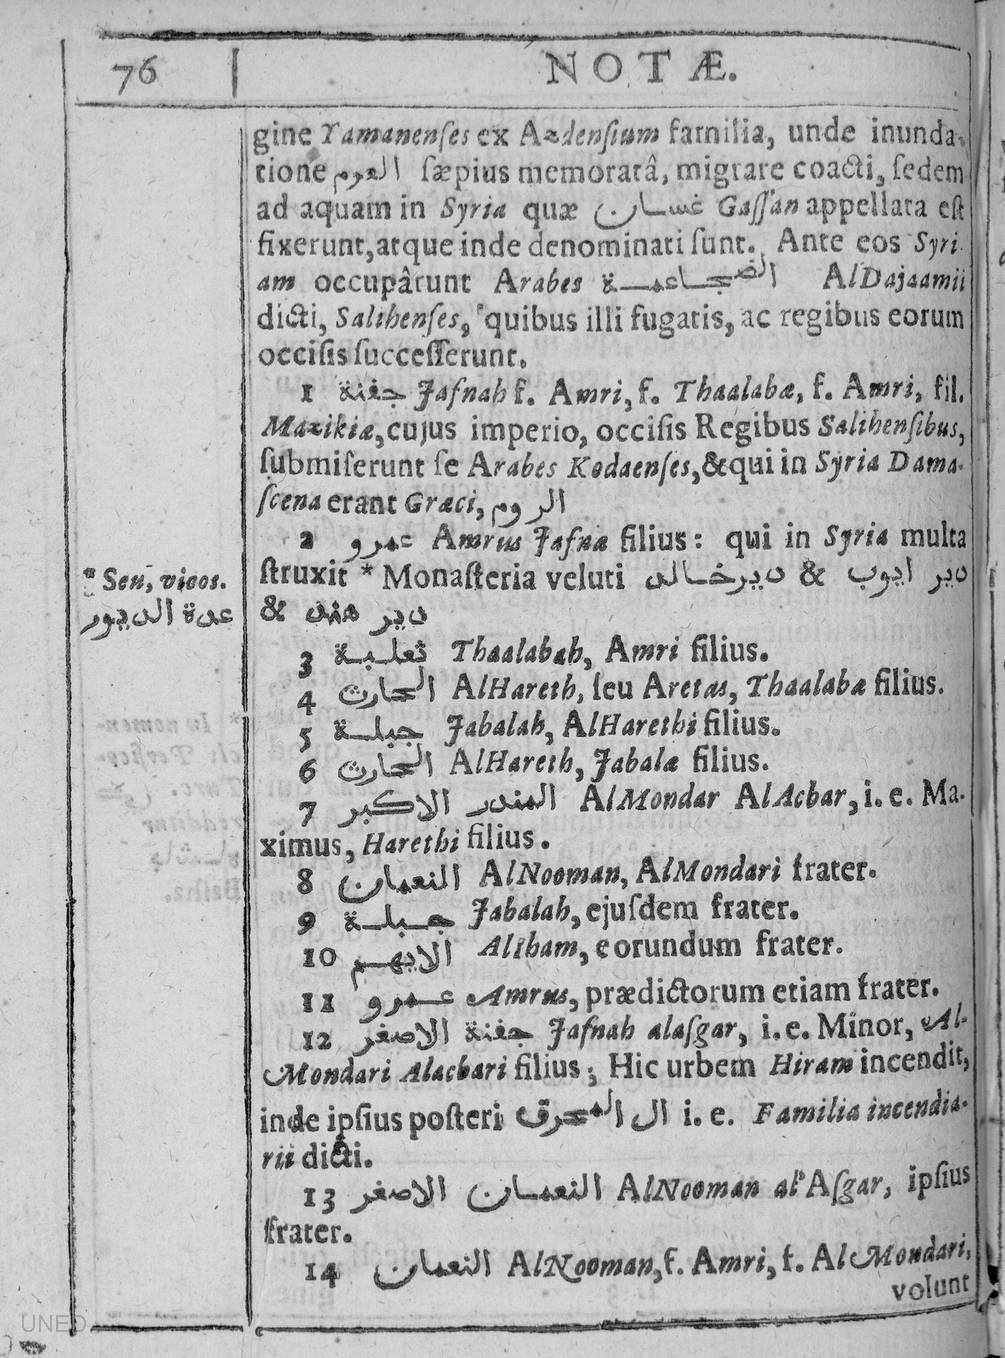 76 NOTÆ.
gine Yamanenſes ex Azdenſium familia, unde inunda-
tione العرم ſæpius memoratâ, migrare coacti, ſedem
ad aquam in Syria quæ غسان Gaſſan appellata eſt
fixerunt, atque inde denominati ſunt. Ante eos Syri-
am occupârunt Arabes الضجاعمة AlDajaamii
dicti, Salihenſes, quibus illi fugatis, ac regibus eorum
occiſis ſucceſſerunt.
1 جفنة Jafnah f. Amri, f. Thaalabæ, f. Amri, fil.
Mazikiæ, cujus imperio, occiſis Regibus Salihenſibus,
ſubmiſerunt ſe Arabes Kodaenſes, & qui in Syria Dama-
ſcena erant Græci, الروم
2 عمرو Amrus Jafnæ filius: qui in Syria multa
ſtruxit * Monaſteria veluti دير خالد & دير ايوب
& دير هند
* Seu, vicos.
عدة الديور
3 ثعلبة Thaalabah, Amri filius.
4 الحارث AlHareth, ſeu Aretas, Thaalabæ filius.
5 جبلة Jabalah, AlHarethi filius.
6 الحارث AlHareth, Jabalæ filius.
7 المنذر الاكبر AlMondar AlAcbar, i. e. Ma-
ximus, Harethi filius.
8 النعمان AlNooman, AlMondari frater.
9 جبلة Jabalah, ejuſdem frater.
10 الايهم Aliham, eorundum frater.
11 عمرو Amrus, prædictorum etiam frater.
12 جفنة الاصغر Jafnah alaſgar, i. e. Minor, Al-
Mondari Alacbari filius; Hic urbem Hiram incendit,
inde ipſius poſteri ال المحرق i. e. Familia incendia-
rii dicti.
13 النعمان الاصغر AlNooman al'Aſgar, ipſius
frater.
14 النعمان AlNooman, f. Amri, f. AlMondari,
volunt
UNED